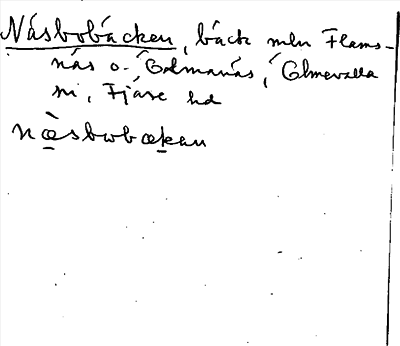 Näsbobäcken, bäck mln Flams-
näs o. Galmanäs, Ölmevalla
sn, Fjäre hd
nὰsbwbækan